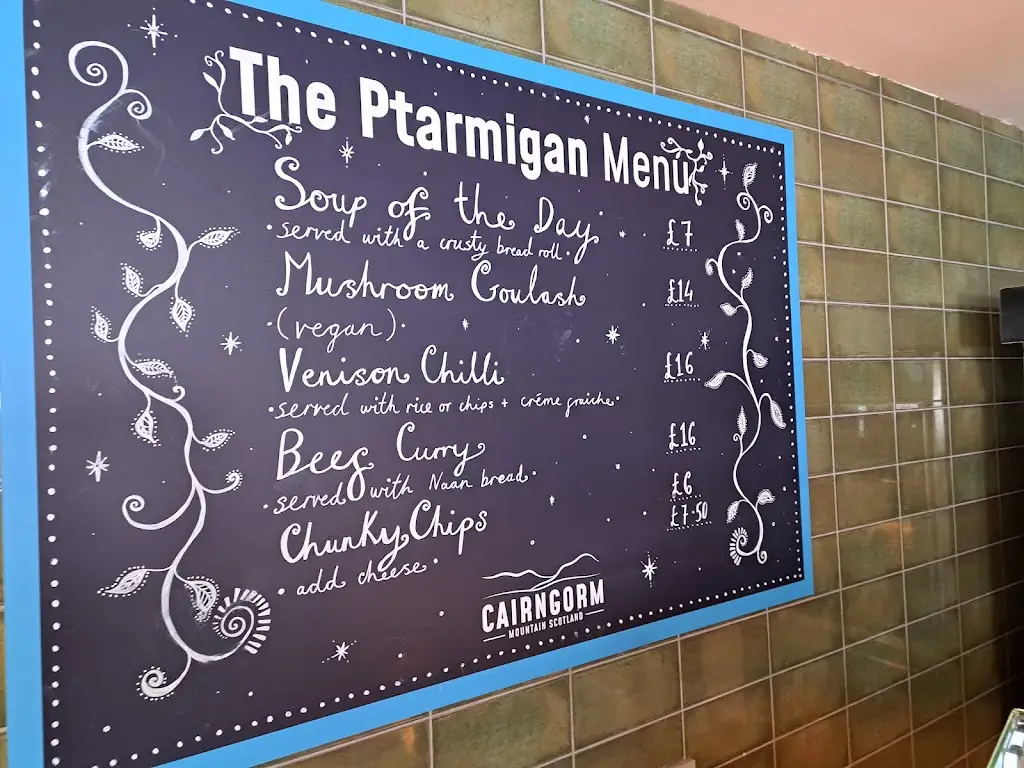 The Ptarmigan Menu
Soup of the Day £7
·served with a crusty bread roll·
Mushroom Goulash £14
·(vegan)·
Venison Chilli £16
·served with rice or chips + créme fraiche·
Beef Curry £16
·served with Naan bread·
Chunky Chips £6
·add cheese· £7·50
CAIRNGORM
MOUNTAIN SCOTLAND